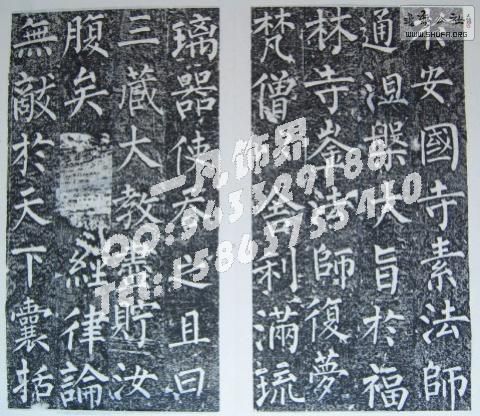 安國寺素法師
通涅槃大旨於福
林寺崟法師復夢
梵僧以舍利滿琉
璃器使吞之且曰
三藏大教盡貯汝
腹矣經律論
無敵於天下囊括
一凡饰界
QQ:963329188
Tel:15863755410
WWW.SHUFA.ORG